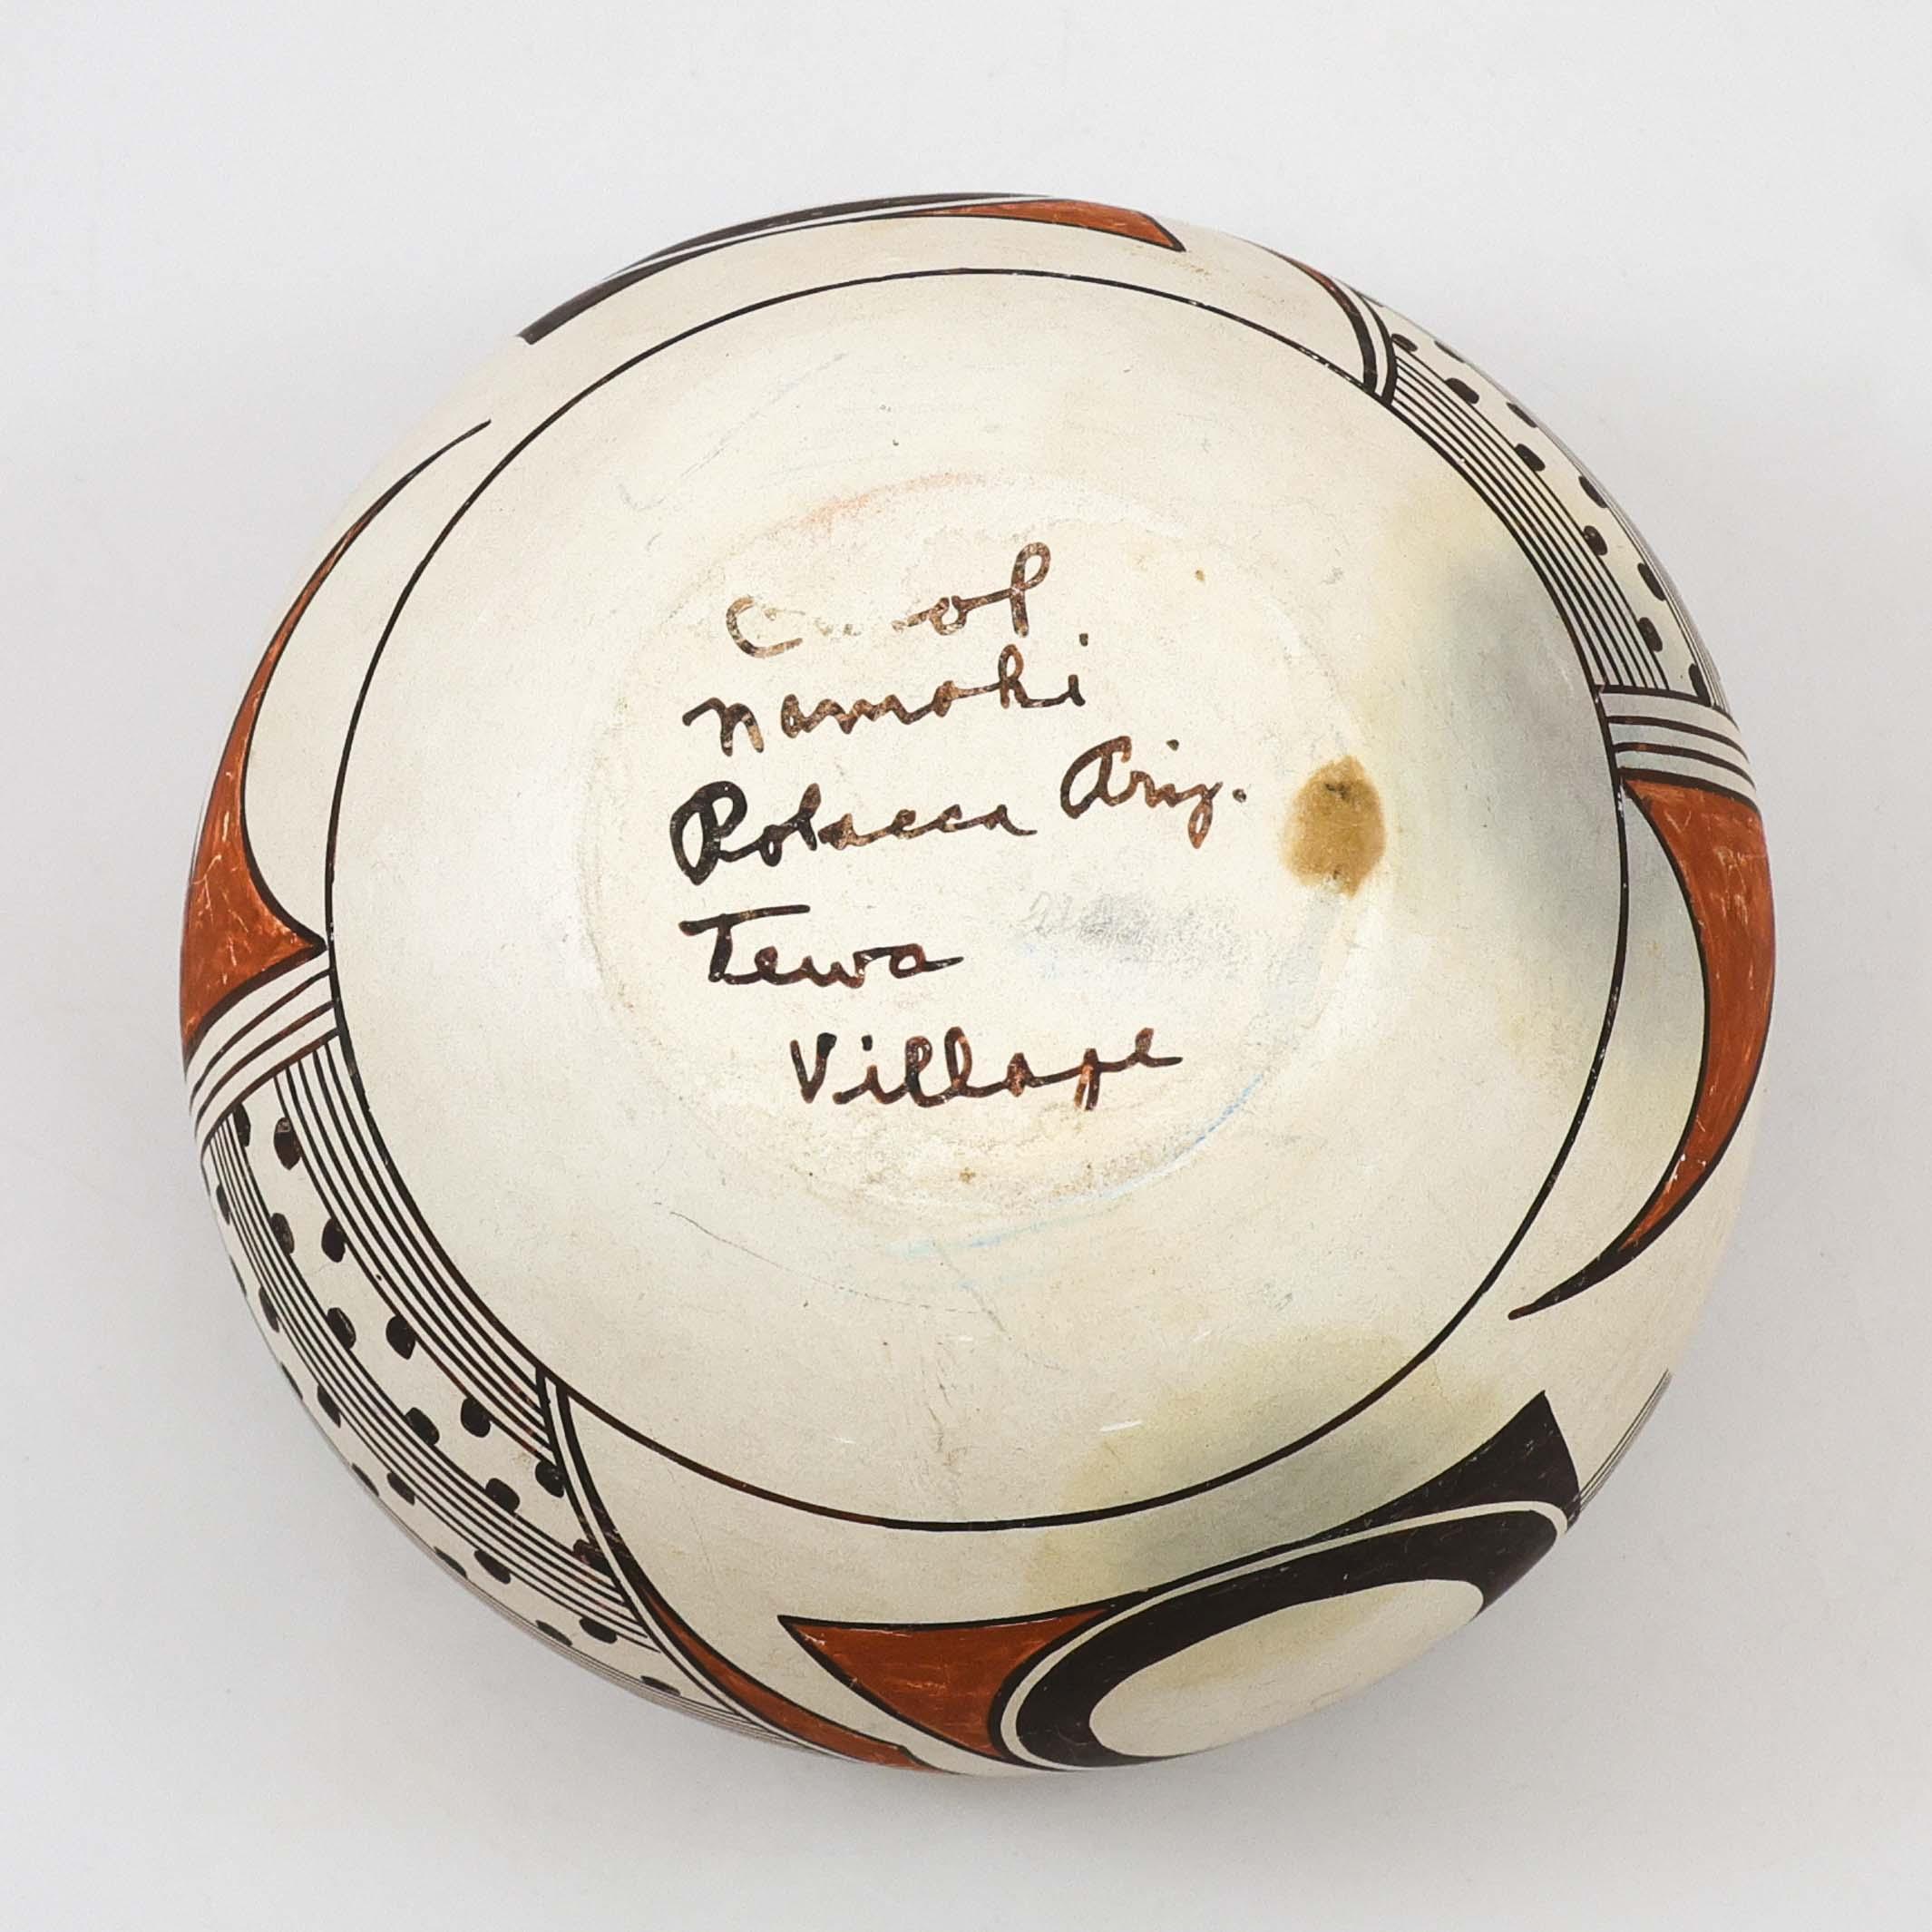 Carol
Namoki
Polacca Ariz.
Tewa
Village